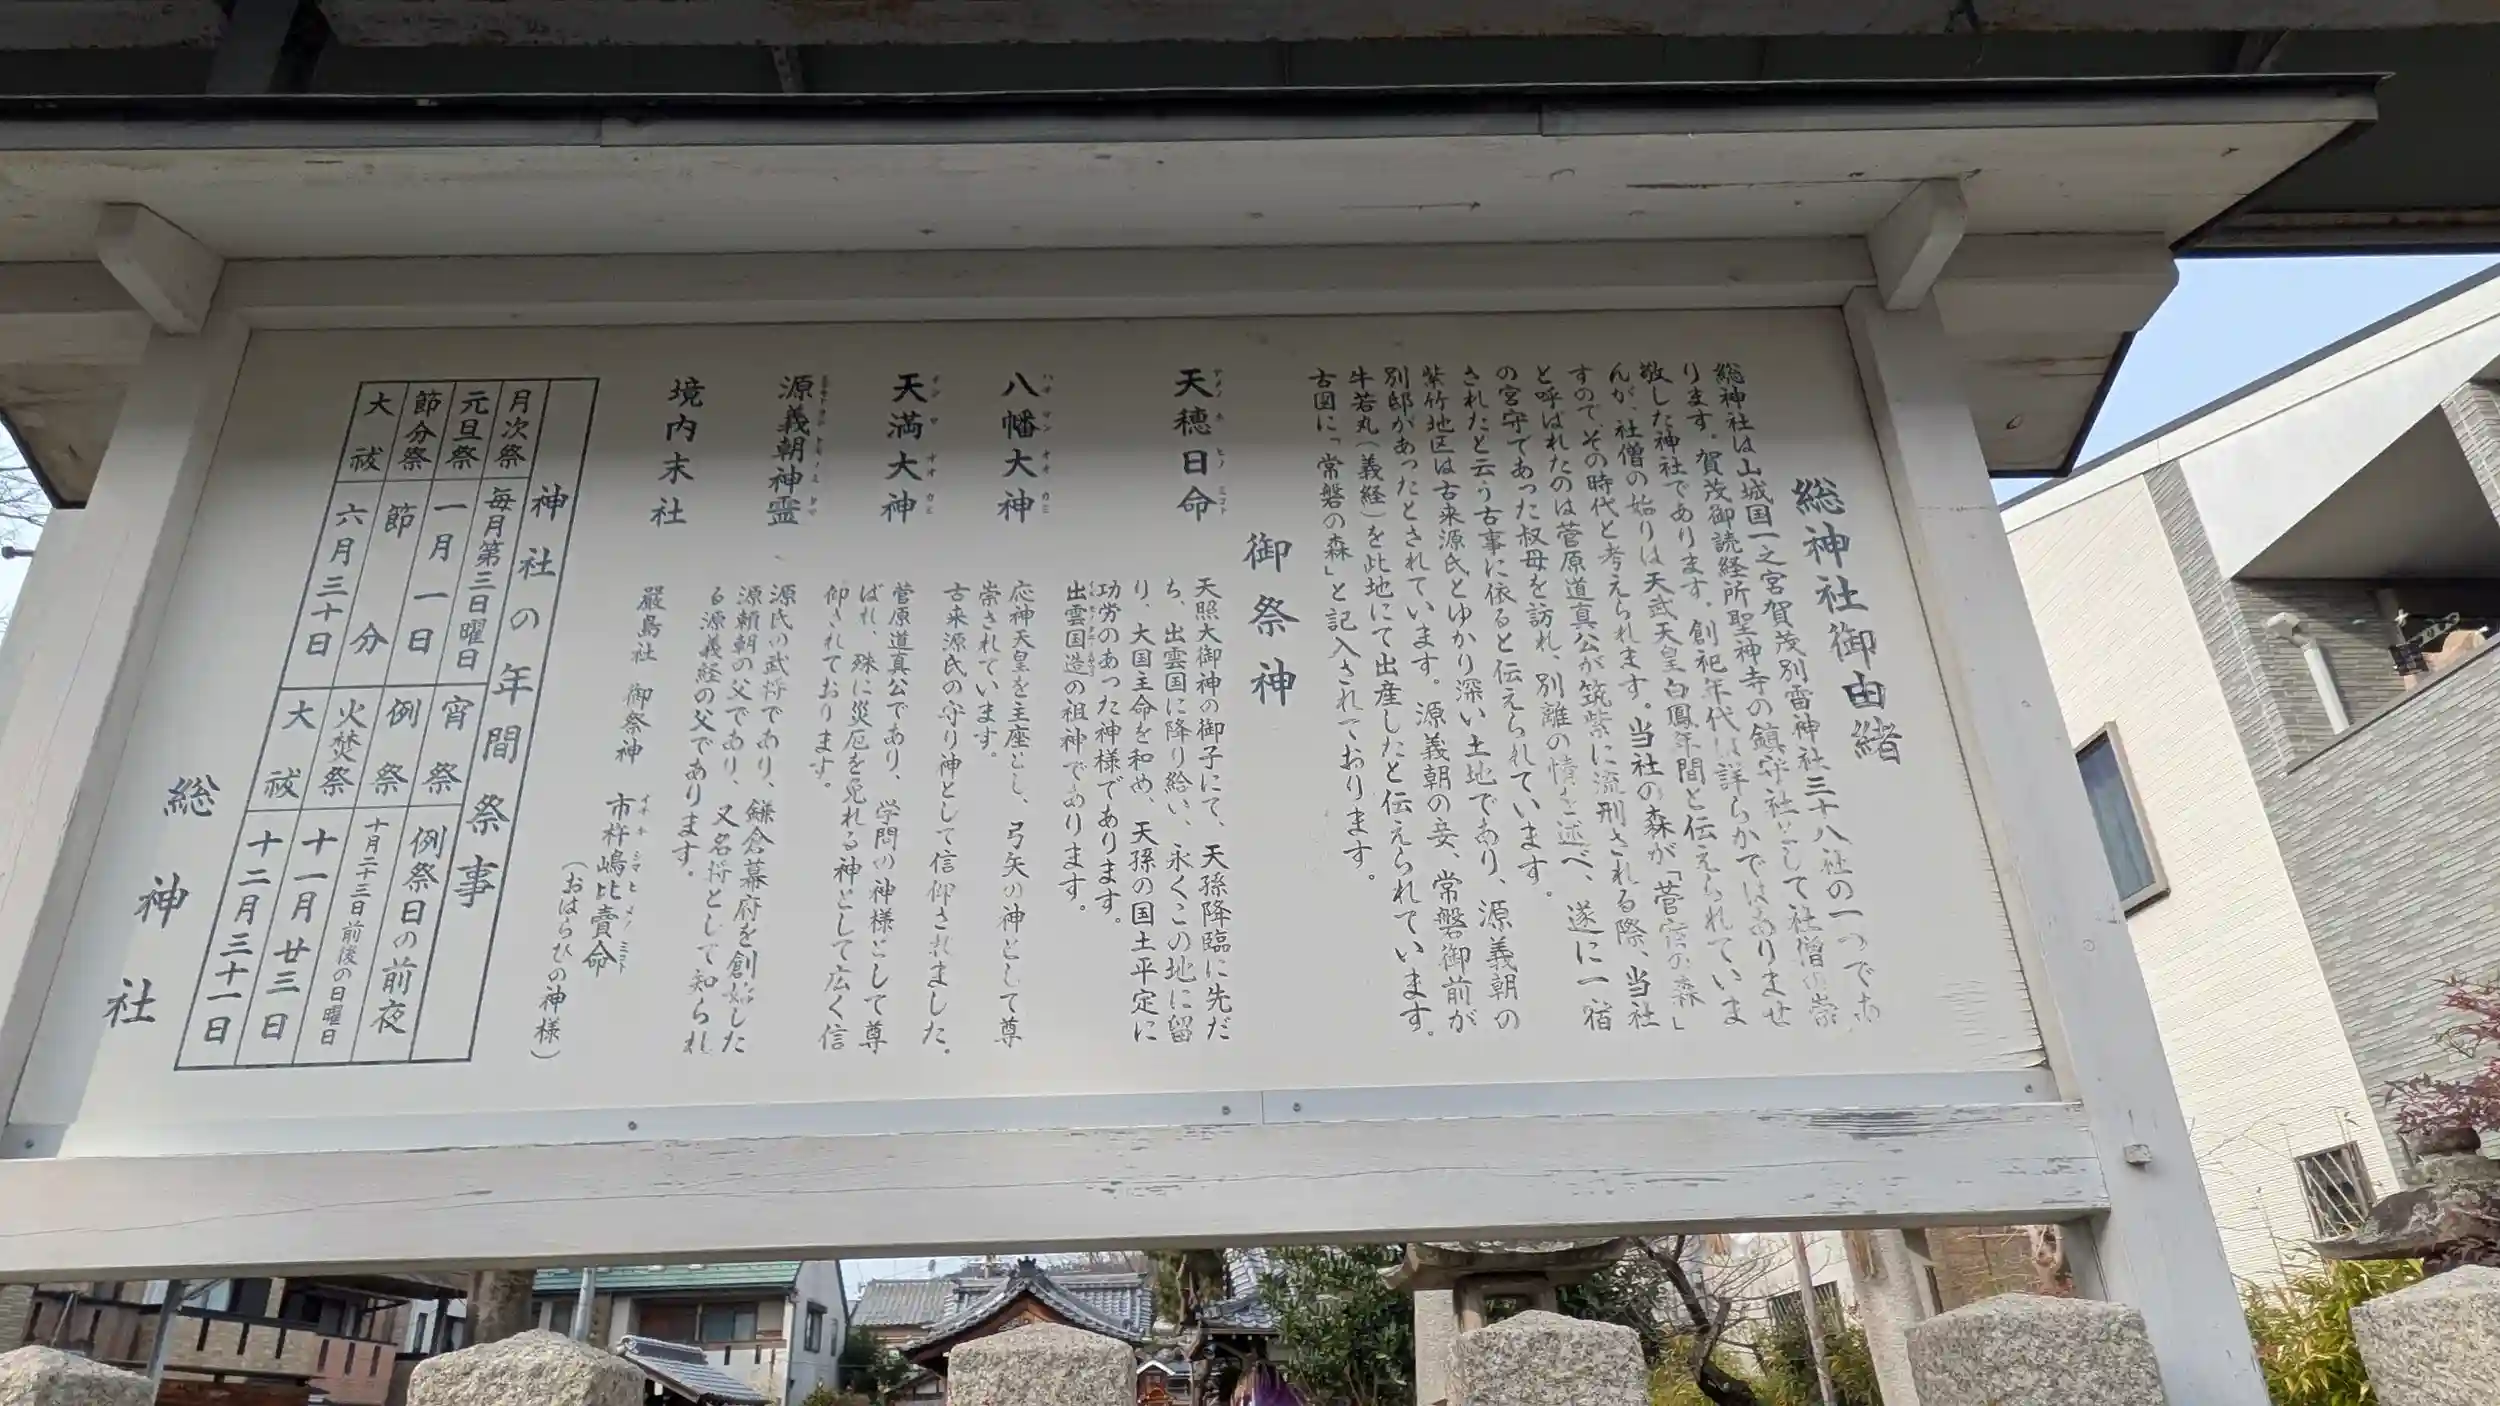 総神社御由緒
総神社は山城国一之宮賀茂別雷神社三十八社の一つであ
ります。賀茂御読経所聖神寺の鎮守社として社僧の崇
敬した神社であります。創祀年代は詳らかではありませ
んが、社僧の始りは天武天皇白鳳年間と伝えられていま
すので、その時代と考えられます。当社の森が「菅宿の森」
と呼ばれたのは菅原道真公が筑紫に流刑される際、当社
の宮守であった叔母を訪れ、別離の情を述べ、遂に一宿
されたと云う古事に依ると伝えられています。
紫竹地区は古来源氏とゆかり深い土地であり、源義朝の
別邸があったとされています。源義朝の妾、常磐御前が
牛若丸(義経)を此地にて出産したと伝えられています。
古図に「常磐の森」と記入されております。
御祭神
天穂日命
アメノホヒノミコト
天照大御神の御子にて、天孫降臨に先だ
ち、出雲国に降り給い、永くこの地に留
り、大国主命を和め、天孫の国土平定に
功労のあった神様であります。
出雲国造の祖神であります。
八幡大神
ハチマンオオカミ
応神天皇を主座とし、弓矢の神として尊
崇されています。
古来源氏の守り神として信仰されました。
天満大神
テンマオオカミ
菅原道真公であり、学問の神様として尊
ばれ、殊に災厄を免れる神として広く信
仰されております。
源義朝神霊
ミナモトヨシトモノミタマ
源氏の武将であり、鎌倉幕府を創始した
源頼朝の父であり、又名将として知られ
る源義経の父であります。
境内末社
嚴島社 御祭神 市杵嶋比賣命
イチキシマヒメノミコト
(おはらひの神様)
神社の年間祭事
月次祭 毎月第三日曜日 宵祭 例祭日の前夜
元旦祭 一月一日 例祭 十月二十三日前後の日曜日
節分祭 節分 火焚祭 十一月廿三日
大祓 六月三十日 大祓 十二月三十一日
総神社